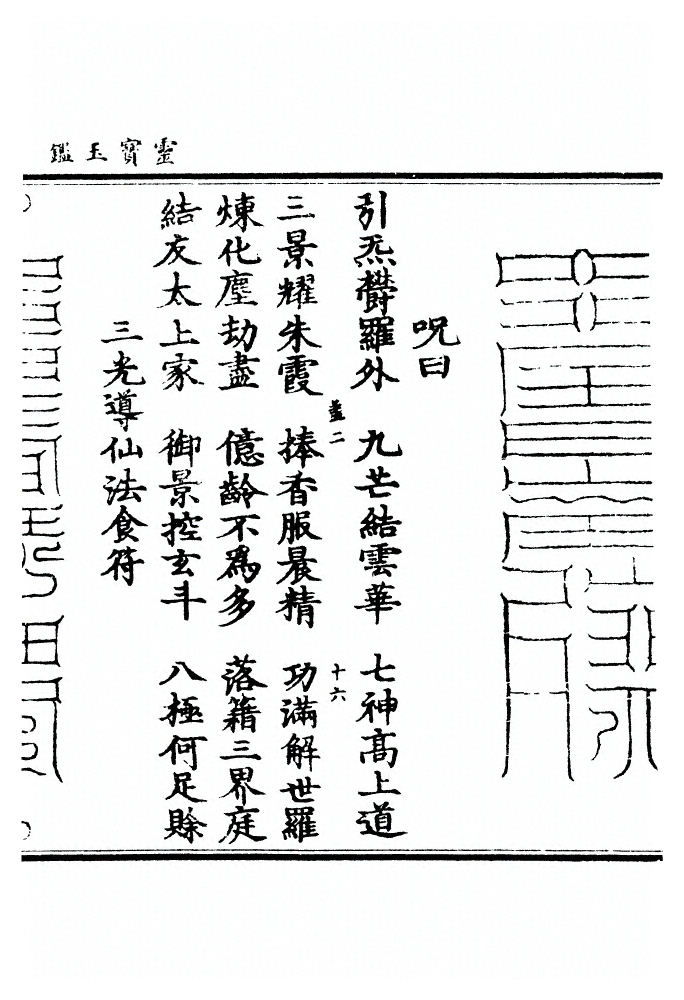 靈寶玉鑑
呪曰
引炁欝羅外　九芒結雲華　七神髙上道
盡二　十六
三景耀朱霞　捧香服晨精　功滿解世羅
煉化塵劫盡　億齡不爲多　落籍三界庭
結友太上家　御景控玄斗　八極何足賖
三光導仙法食符